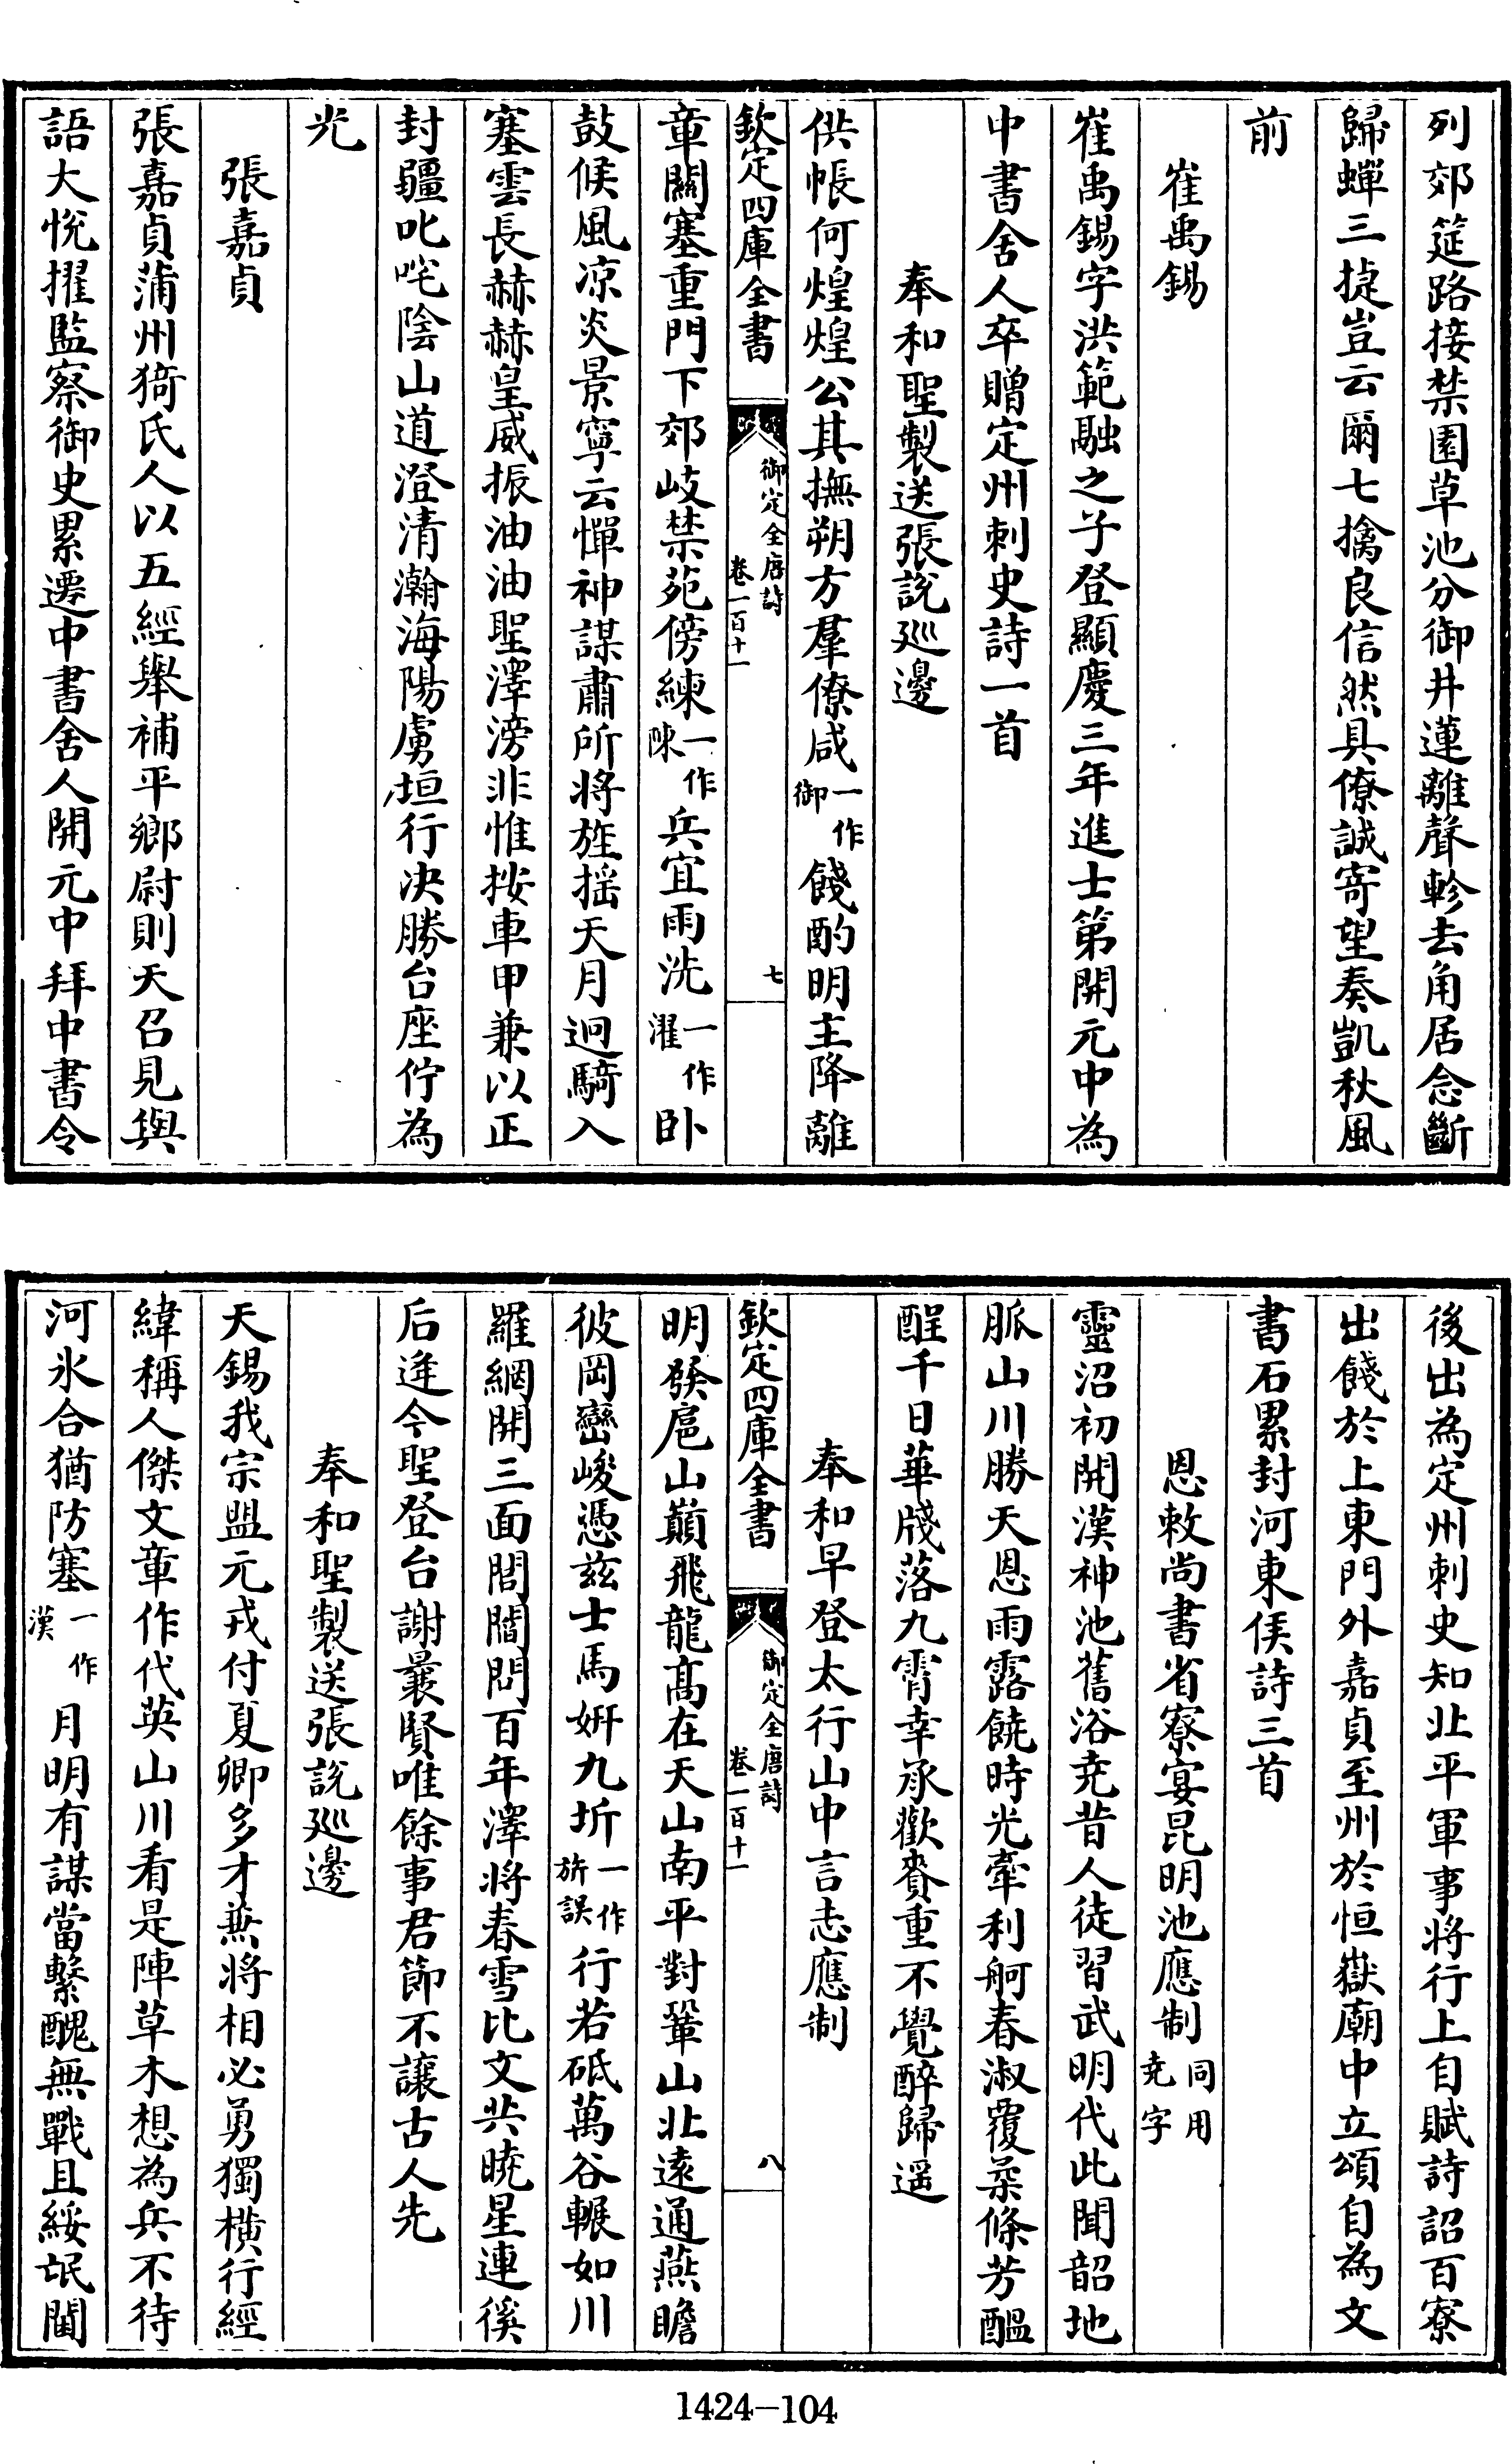 列郊筵路接禁園草池分御井蓮離聲軫去角居念斷
歸蟬三捷豈云爾七擒良信然具僚誠寄望奏凱秋風
前
崔禹錫
崔禹錫字洪範融之子登顯慶三年進士第開元中為
中書舍人卒贈定州刺史詩一首
奉和聖製送張說廵邊
供帳何煌煌公其撫朔方羣僚咸一作御餞酌明主降離
欽定四庫全書 御定全唐詩 卷一百十一 七
章關塞重門下郊岐禁苑傍練一作陳兵宜雨洗一作濯卧
鼓候風凉炎景寧云憚神謀肅所將旌揺天月迥騎入
塞雲長赫赫皇威振油油聖澤滂非惟按車甲兼以正
封疆叱咤陰山道澄清瀚海陽虜垣行決勝台座佇為
光
張嘉貞
張嘉貞蒲州猗氏人以五經舉補平鄉尉則天召見與
語大悅擢監察御史累遷中書舍人開元中拜中書令
後出為定州刺史知北平軍事將行上自賦詩詔百寮
出餞於上東門外嘉貞至州於恒嶽廟中立頌自為文
書石累封河東侯詩三首
恩敕尚書省寮宴昆明池應制同用堯字
靈沼初開漢神池舊浴堯昔人徒習武明代此聞韶地
脈山川勝天恩雨露饒時光牽利舸春淑覆柔條芳醖
酲千日華牋落九霄幸承歡賚重不覺醉歸遥
奉和早登太行山中言志應制
欽定四庫全書 御定全唐詩 卷一百十一 八
明發扈山巔飛龍高在天山南平對鞏山北遠通燕瞻
彼岡巒峻憑兹士馬姸九圻一作旂誤行若砥萬谷輾如川
羅網開三面閭閻問百年澤將春雪比文共曉星連徯
后逢今聖登台謝曩賢唯餘事君節不讓古人先
奉和聖製送張說廵邊
天錫我宗盟元戎付夏卿多才兼將相必勇獨横行經
緯稱人傑文章作代英山川看是陣草木想為兵不待
河氷合猶防塞一作漢月明有謀當繫醜無戰且綏氓閫
1424-104